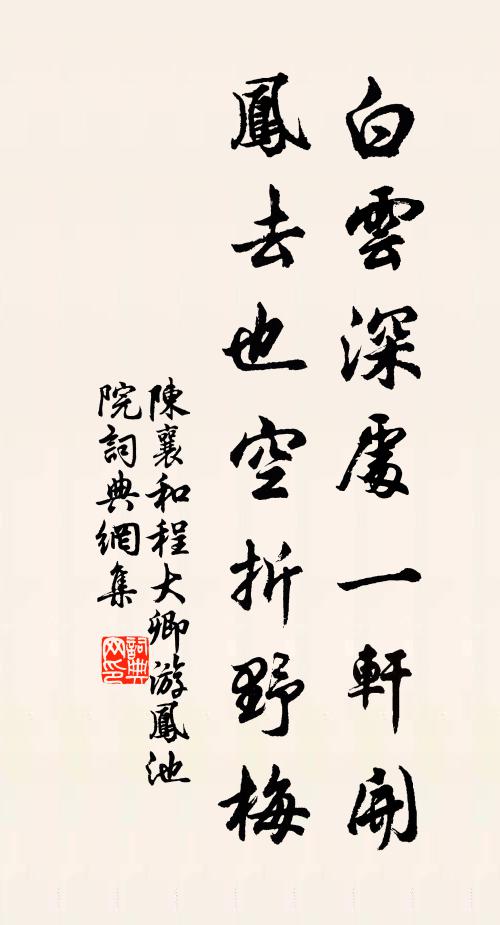 白雲深處一軒開
鳳去也空折野梅
陳襄和程大卿游鳳池
院詞典網集
詞典
网印